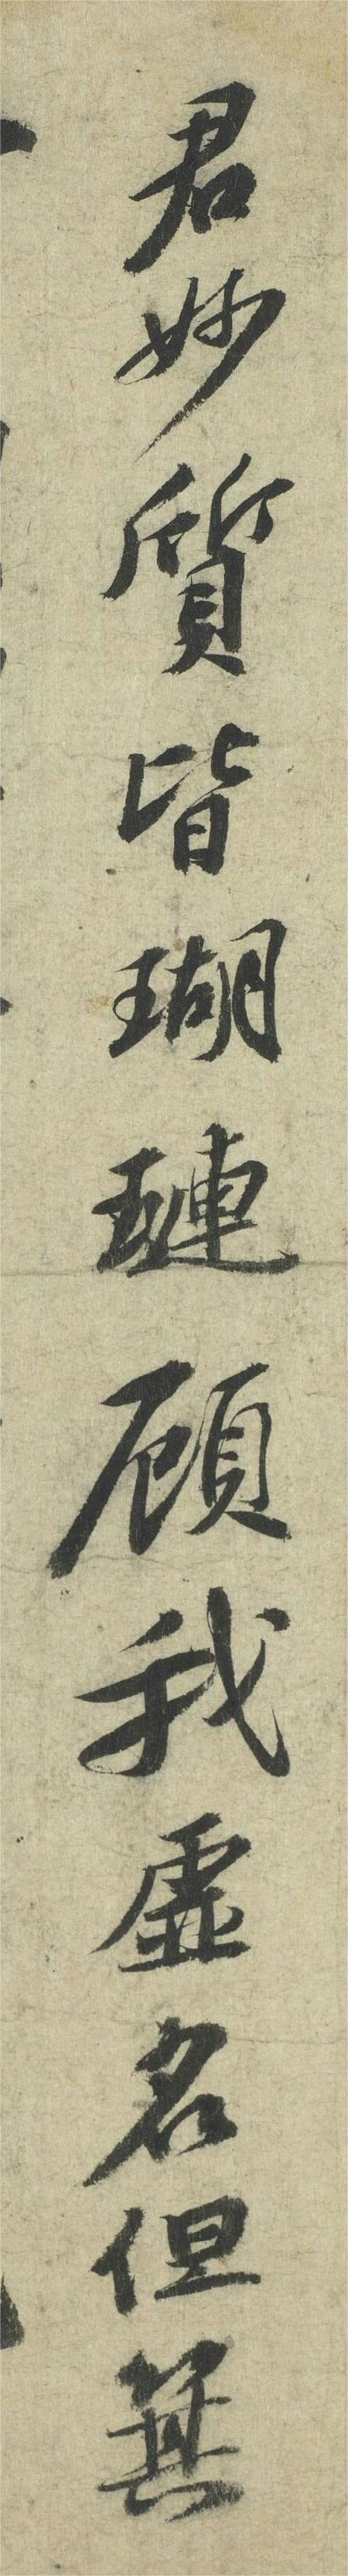 君妙質皆瑚璉顧我虛名但箕